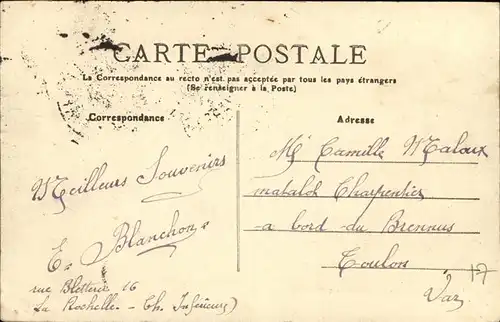 CARTE POSTALE
La Correspondance au recto n'est pas acceptée par tous les pays étrangers
(Se renseigner à la Poste)
Correspondance
Meilleurs Souvenirs
E. Blanchon
rue Bletterie 16
La Rochelle. Ch. Inférieure)
Adresse
Mr Camille Maloux
matelot Charpentier
a bord du Brennus
Toulon
Var
17